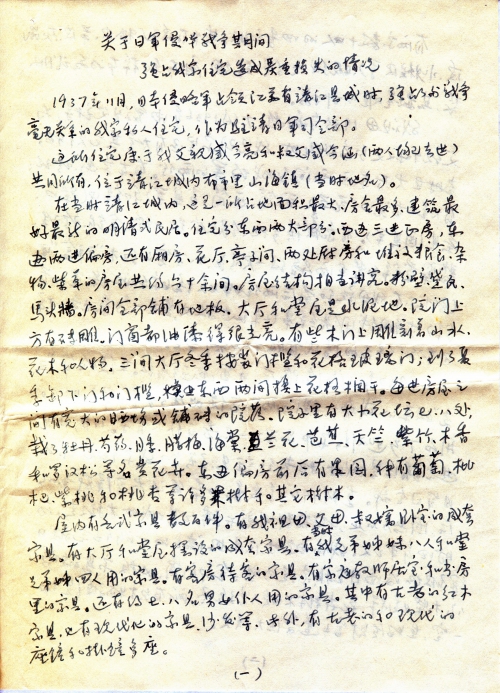 关于日军侵华战争期间
强占我家住宅造成严重损失的情况
1937年11月,日本侵略军占领江苏省靖江县城时强占与战争
毫无关系的我家私人住宅,作为驻靖日军司令部。
这所住宅原于我父亲盛今亮和叔父盛今涵(两人均已去世)
共同所有,住于靖江城内布市里山海镇(当时地名)。
在当时靖江城内,这是一所占地面积最大、房屋最多、建筑最
好最新的明清式民居。住宅分东西两大部分。西边三进正房,东
边两进偏房,还有厢房、花厅、亭子间、两处厨房和堆放粮食、杂
物、柴草的房屋共约六十余间。房屋结构相当讲究。粉壁、瓷瓦、
马头墙。房间全部铺有地板,大厅和堂屋是水泥地。院门上
方有砖雕。门窗都油漆得很光亮。有些木门上用雕刻着山水、
花木和人物。三间大厅冬季按装门槛和花格玻璃门;到了夏
季卸下门和门槛,横边东西两间换上花格栏干。每进房屋之
间有宽大的晒场或铺砖的院落。院子里有大小花坛七、八处,
栽了牡丹、芍药、月季、腊梅、海棠、兰花、芭蕉、天竺、紫竹、木香
和罗汉松等名贵花卉。东边偏房前后有果园,种有葡萄、枇
杷、紫桃和桃杏等许多果树和其它树木。
屋内有各式家具数百件。有我祖母、父母、叔婶卧室的成套
家具。有大厅和堂屋摆设的成套家具。有我兄弟姊妹八人和堂
兄弟姊四人用的家具。有客房待客的家具。有家庭教师居室和书房
里的家具。还有约七、八名男女仆人用的家具。其中有古老的红木
家具,也有现代化的家具,沙发等。此外,有古老的和现代的
座钟和挂钟多座。
(一)